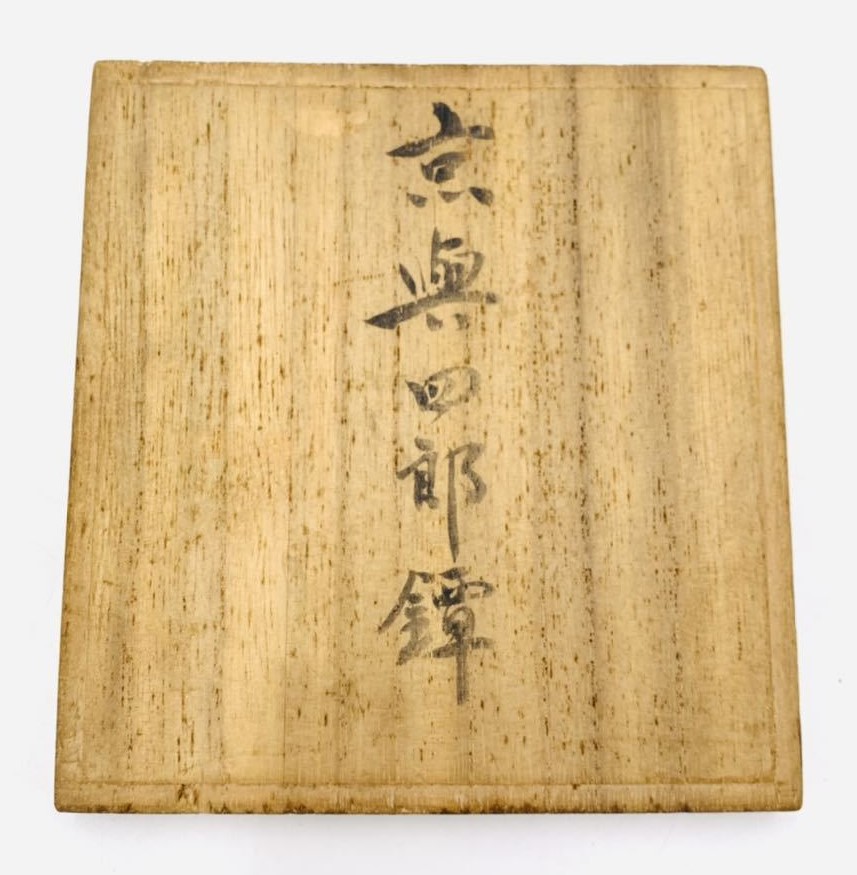 京與四郎鐔